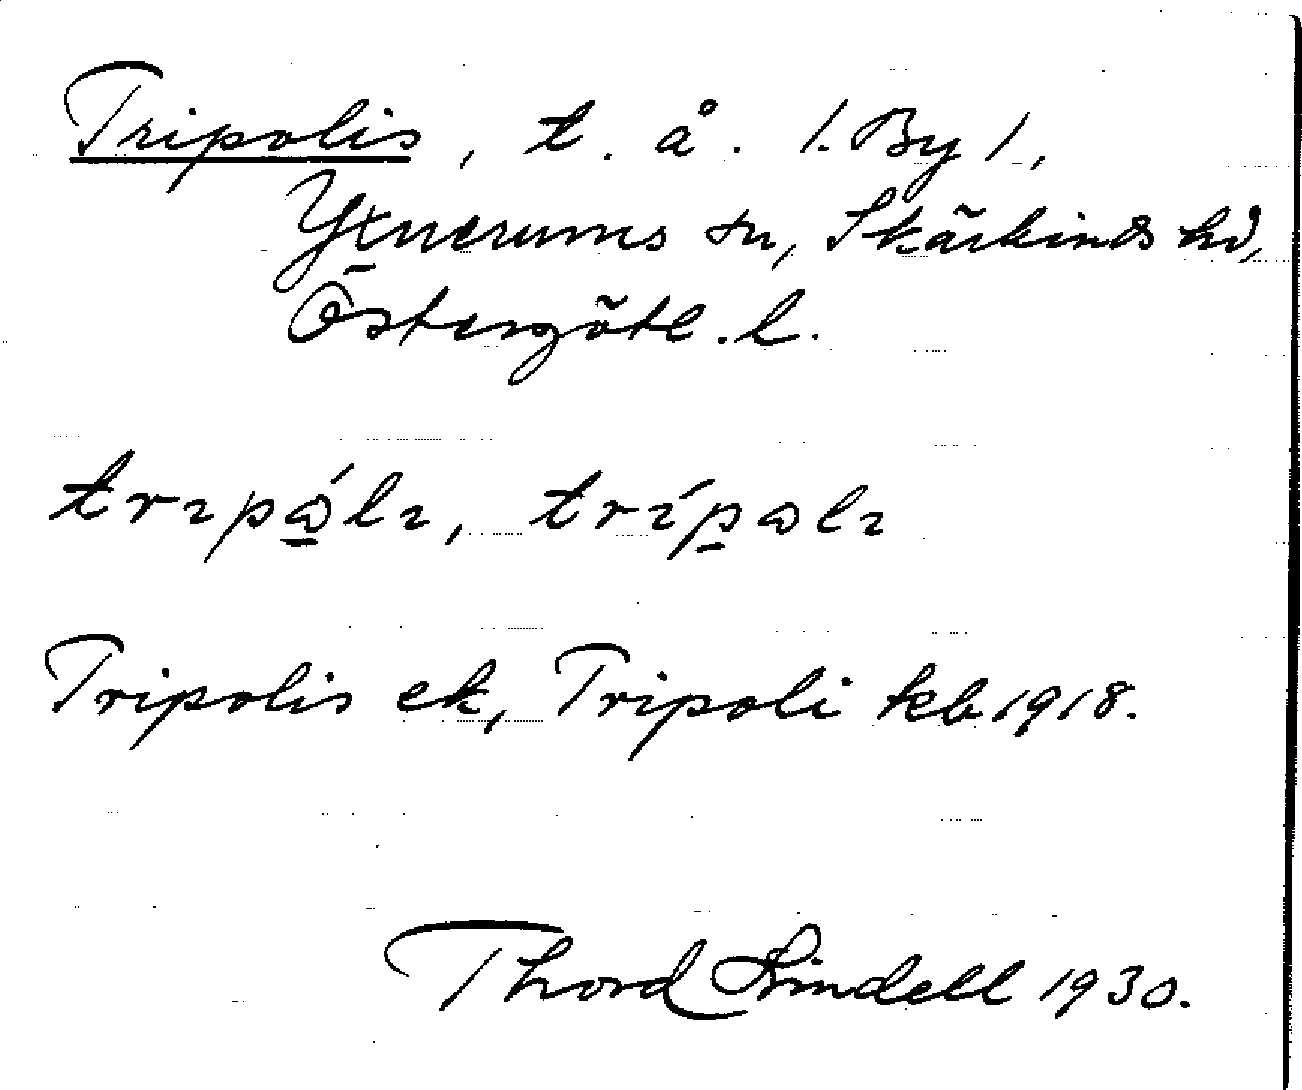 Tripolis, t. å. /. By /,
Ytnerums sn, Skärkinds hd,
Östergötl. l.
trıpǻlı, trı́pålı
Tripolis ek, Tripoli kb 1918.
Thord Lindell 1930.